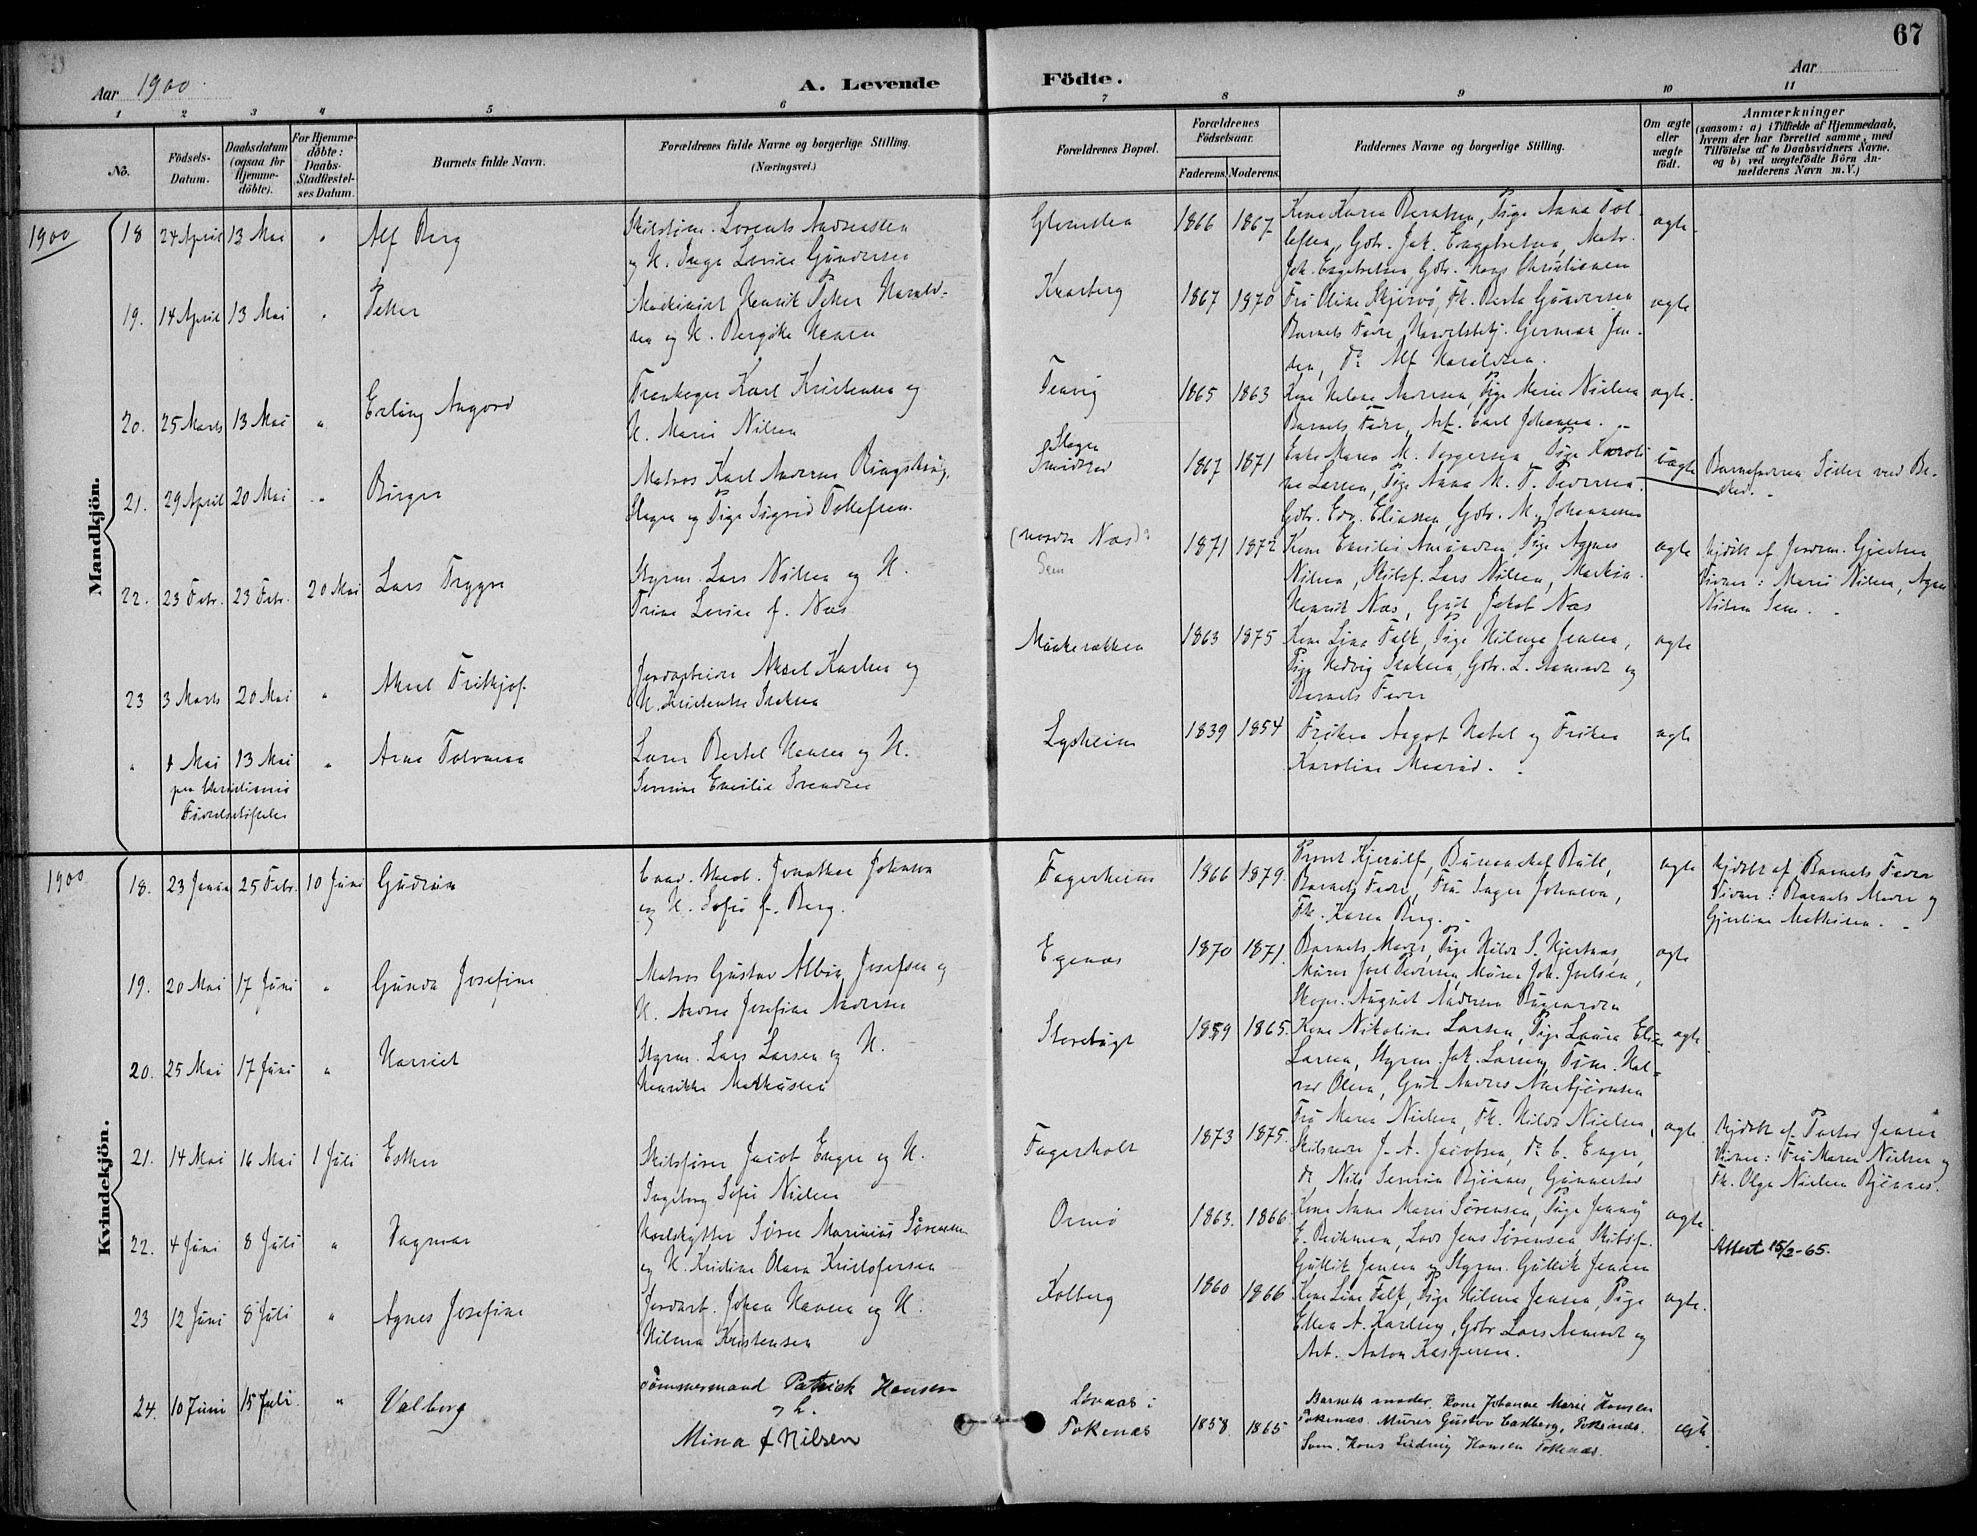 67
Aar 1900.
A. Levende Födte.
Aar
1 2 3 4 5 6 7 8 9 10 11
No.
Födsels-Datum.
Daabsdatum (ogsaa for Hjemme-döbte).
For Hjemme-döbte: Daabs-Stadfæstel-ses Datum.
Barnets fulde Navn.
Forældrenes fulde Navne og borgerlige Stilling.
(Næringsvei.)
Forældrenes Bopæl.
Forældrenes Födselsaar.
Faderens. Moderens.
Faddernes Navne og borgerlige Stilling.
Om ægte eller uægte födt.
Anmærkninger
(saasom: a) i Tilfælde af Hjemmedaab, hvem der har forrettet samme, med Tilföielse af to Daabsvidners Navne. og b) ved uægtefödte Börn An-melderens Navn m.V.)
Mandkjön.
1900
18 24 April 13 Mai " Alf Berg
og H. Inga Lovise Gundersen
1866 1867
Jak. Engebretsen, Gbr. Hans Christiansen
ægte.
19. 14 April 13 Mai " Peter
Maskinist Henrik Peter Harald-
sen og H. Bergitte Hansen
Knarberg 1867 1870
Frü Oline Skjersø, Fk. Berta Gundersen
Barnets Fader, Handelsbetj. Herman Jen-
sen, Do Alf Haraldsen.
ægte
20. 25 Marts 13 Mai " Erling Angord
Karl Kristensen og
H. Marie Nilsen
Tenvig 1865 1863
Kone Helene Andersen, Pige Marie Nielsen
Barnets Fader, Arb. Carl Johansen.
ægte.
21. 29 April 20 Mai " Birger
Matros Karl Anderns Ringshaug,
Slagen og Pige Sigrid Tollefsen.
Slagen
Smidsrød
1867 1871
Enke Maren M. Torgersen, Pige Karoli
ne Larsen, Pige Anna M. F. Pedersen.
Gbr. Edv. Eliassen, Gbr. M. Johannesen
uægte
Barnefaderen Söder ved Be-
sked.
22. 23 Febr. 23 Febr. 20 Mai Lars Trygve
Styrm. Lars Nilsen og H.
Trine Lovise f. Næs
(nordre Næs):
Sem
1871 1872
Kone Emilie Amundsen, Pige Agnes
Nilsen, Skibsf. Lars Nilsen, Maskin.
Henrik Næs, Gut Jakob Næs
ægte
Hjdbt af Jordm. Gjertsen
Vidner: Marie Nilsen, Agnes
Nilsen Sem.
23 3 Marts 20 Mai " Aksel Fritkjof.
Jordarbeider Aksel Karlsen og
H. Kristentse Isaksen
1863 1875
Kone Lina Falk, Pige Hilma Jensen,
Pige Hedvig Isaksen, Gbr. L. Aamodt og
Barnets Fader
ægte
" 1 Mai 13 Mai " Arne Tolvansen
paa Christiania
Födselsstiftelse
Lærer Bertel Hansen og H.
Severine Emilie Svendsen
Lysheim 1839 1854
Frøken Aagot Hatal og Frøken
Karoline Mearud.
ægte
Kvindekjön.
1900
18. 23 Januar 25 Febr. 10 Juni Gudrun
Cand. Med. Jonathan Johnson
og H. Sofie f. Berg.
Fagerheim 1866 1879.
Provst Kjerulf, Bureauchef Bull,
Barnets Fader, Frü Inger Johnson,
Fk. Karen Berg.
ægte
Hjdbt af Barnets Fader
Vidner: Barnets Moder og
Gjertine Mathisen.
19. 20 Mai 17 Juni " Gunda Josefine
Matros Gustav Albin Josefsen og
H. Andrea Josefine Andersen
Egenæs 1870 1871.
Barnets Moder, Pige Hilda S. Hjertnæs,
Murer Joel Pedersen, Murer Joh. Joelsen,
Skopr. August Andersen
ægte
20. 25 Mai 17 Juni " Harriet
Styrm. Lars Larsen og H.
Henrikke Mathisen
Storebugt 1859 1865.
Kone Nikoline Larsen, Pige Laura Elise
Larsen, Styrm. Jak. Larsen, Töm. Hal-
vor Olsen, Gut Anders Aasbjørnsen
ægte.
21. 14 Mai 16 Mai 1 Juli Esther
Skibsfører Jacob Enger og H.
Ingeborg Sofie Nielsen
Fagerholt 1873 1875.
Frü Maren Nielsen, Fk. Hilda Nielsen,
Skibsreder J. A. Jacobsen, Do C. Enger,
Do Nils Severin Bjönnes,
ægte.
Hjdbt af Pastor Jensen
Vidner: Frü Maren Nielsen og
Fk. Olga Nielsen Bjönnes.
22. 4 Juni 8 Juli " Dagmar
Hvalskytter Sören Marinius Sörensen
og H. Kristine Olava Kristofersen
Ormö 1863. 1866.
Kone Anne Marie Sörensen, Pige Jenny
E. Beckman, Lods Jens Sörensen Skibsf.
Gullik Jensen og Styrm. Gullik Jensen
ægte
Attest 15/2-65.
23 12 Juni 8 Juli " Agnes Josefine
Jordarb. Johan Hansen og H.
Hilma Kristensen
Kolberg 1860 1866
Kone Line Falk, Pige Hilma Jensen, Pige
Ellen A. Karlsen, Gbr Lars Aamodt og
Arb. Anton Kaspersen.
ægte.
24. 10 Juni 15 Juli. " Valborg
Tömmermand Patrick Hansen
og h.
Mina f Nilsen
Tokenæs 1858. 1865
Barnets moder, Kone Johanne Marie Hansen
Tokenæs. Murer Gustav Carlberg, Tokenæs.
Søm. Hans Ludvig Hansen Tokenæs.
ægte.